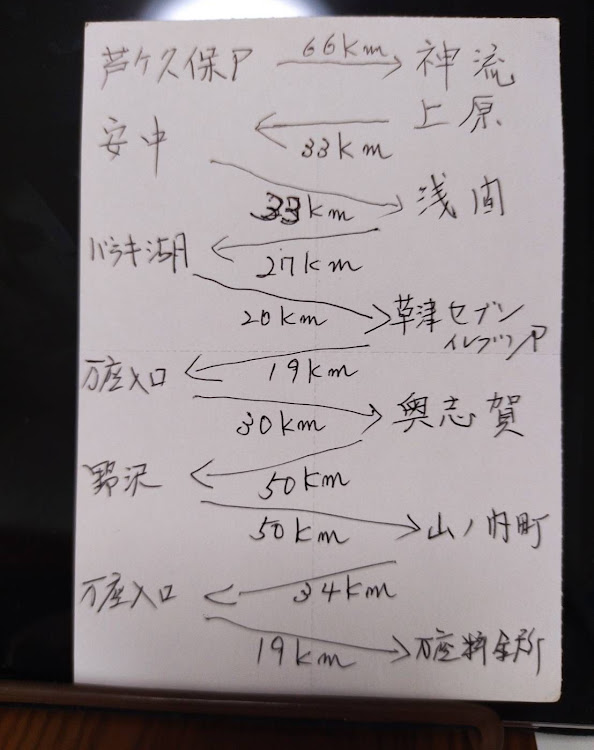 芦ケ久保P 66km 神流
上原
安中 33km
33km 浅間
バラキ湖 27km
20km 草津セブン
イレブンP
万座入口 19km
30km 奥志賀
野沢 50km
50km 山ノ内町
万座入口 34km
19km 万座料金所